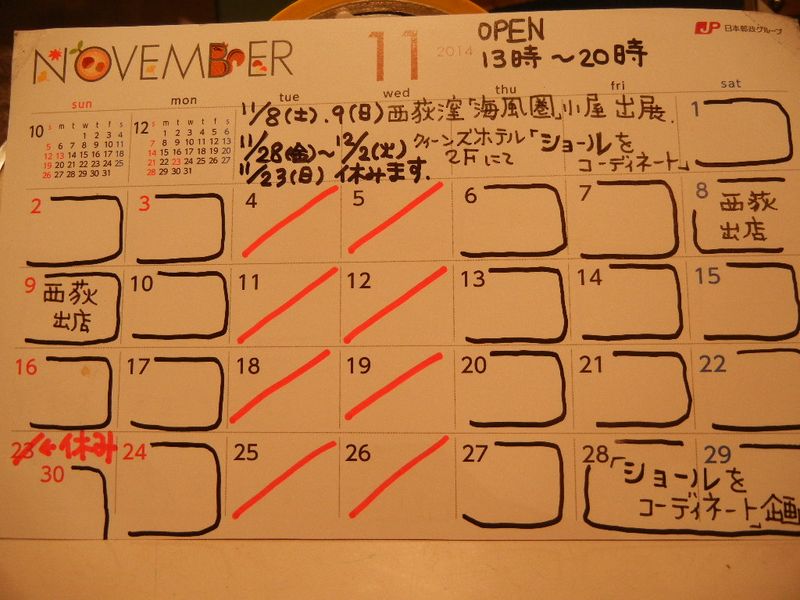 NOVEMBER 11 2014 OPEN
13時～20時
JP 日本郵政グループ
sun mon tue wed thu fri sat
10 s m t w t f s
1 2 3 4
5 6 7 8 9 10 11
12 13 14 15 16 17 18
19 20 21 22 23 24 25
26 27 28 29 30 31
12 s m t w t f s
1 2 3 4 5 6
7 8 9 10 11 12 13
14 15 16 17 18 19 20
21 22 23 24 25 26 27
28 29 30 31
11/8(土).9(日)西荻窪「海風圏」小屋 出展.
11/28(金)～12/2(火) クィーンズホテル「ショールを
2Fにて コーディネート」
11/23(日) 休みます.
1
2 3 4 5 6 7 8 西荻
出店
9 西荻 10 11 12 13 14 15
出店
16 17 18 19 20 21 22
23 ←休み 24 25 26 27 28 29
30 「ショールを
コーディネート」企画